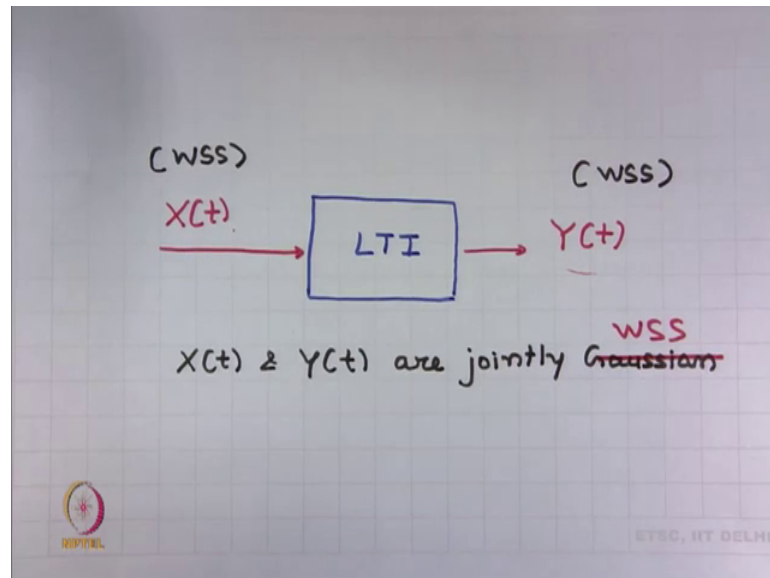 (WSS)
(WSS)
X(t)
LTI
Y(t)
WSS
X(t) & Y(t) are jointly Gaussian
NPTEL
ETSC, IIT DELHI